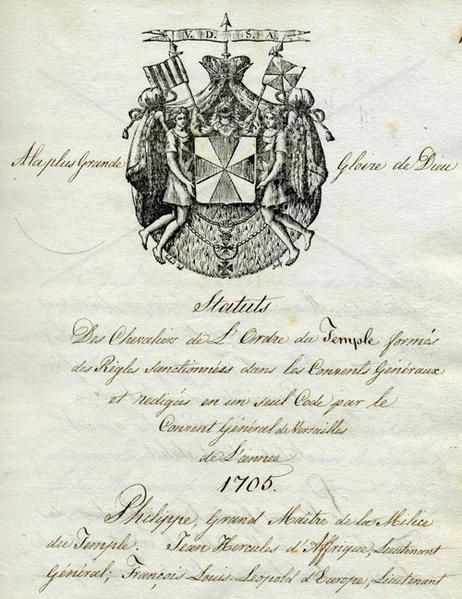 V. D. S. A
A la plus Grande Gloire de Dieu
Statuts
Des Chevaliers de L'Ordre du Temple formés
des Règles sanctionnées dans les Convents Généraux
et redigées en un seul Code par le
Convent Général de Versailles
de L'année
1705.
Philippe, Grand Maitre de la Milice
du Temple. Jean Hercules d'Affrique, Lieutenant
Général; François Louis Leopold d'Europe, Lieutenant